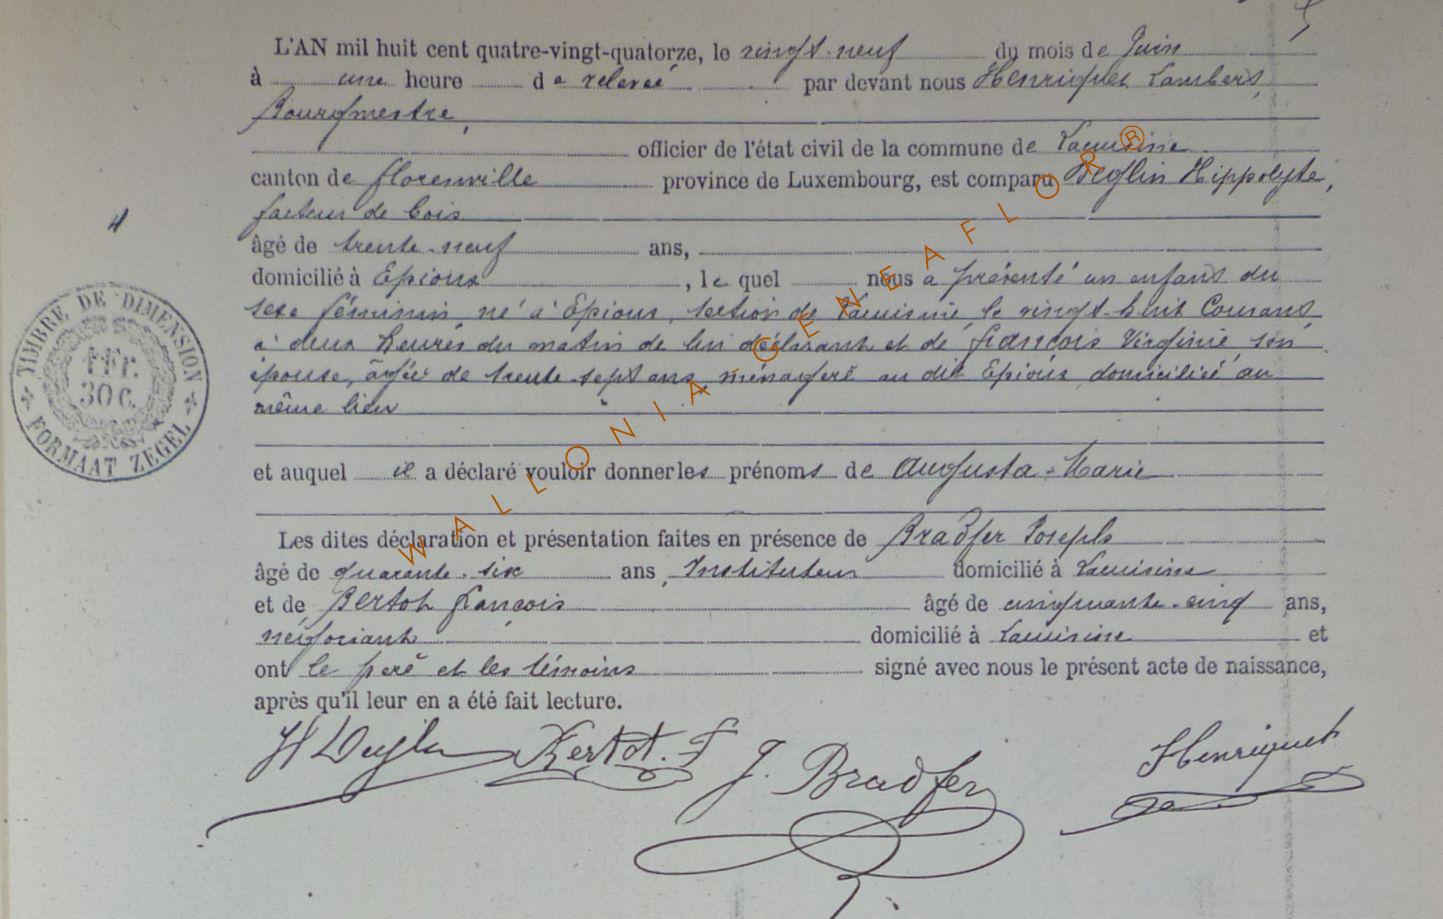 L'AN mil huit cent quatre-vingt-quatorze, le vingt-neuf du mois de Juin
à une heure de relevée par devant nous Henriquet Lambert,
Bourgmestre,
officier de l'état civil de la commune de Lacuisine
canton de florenville province de Luxembourg, est comparu Deglin Hippolyte,
facteur de bois
4
âgé de trente-neuf ans,
domicilié à Epioux, le quel nous a présenté un enfant du
sexe féminin, né à Epioux, section de Lacuisine, le vingt-huit Courant
à deux heures du matin de lui déclarant et de françois Virginie, son
épouse, âgée de trente-sept ans, ménagère au dit Epioux, domiciliée au
même lieu
et auquel il a déclaré vouloir donner les prénoms de Augusta-Marie
Les dites déclaration et présentation faites en présence de Bradfer Joseph
âgé de quarante-six ans, Instituteur domicilié à Lacuisine
et de Bertot françois âgé de cinquante-cinq ans,
négociant domicilié à Lacuisine et
ont le père et les témoins signé avec nous le présent acte de naissance,
après qu'il leur en a été fait lecture.
H Deglin Bertot. F J. Bradfer Henriquet
TIMBRE DE DIMENSION
1 FR.
30 C.
FORMAAT ZEGEL
WALLONIA-GENEAFLOR®